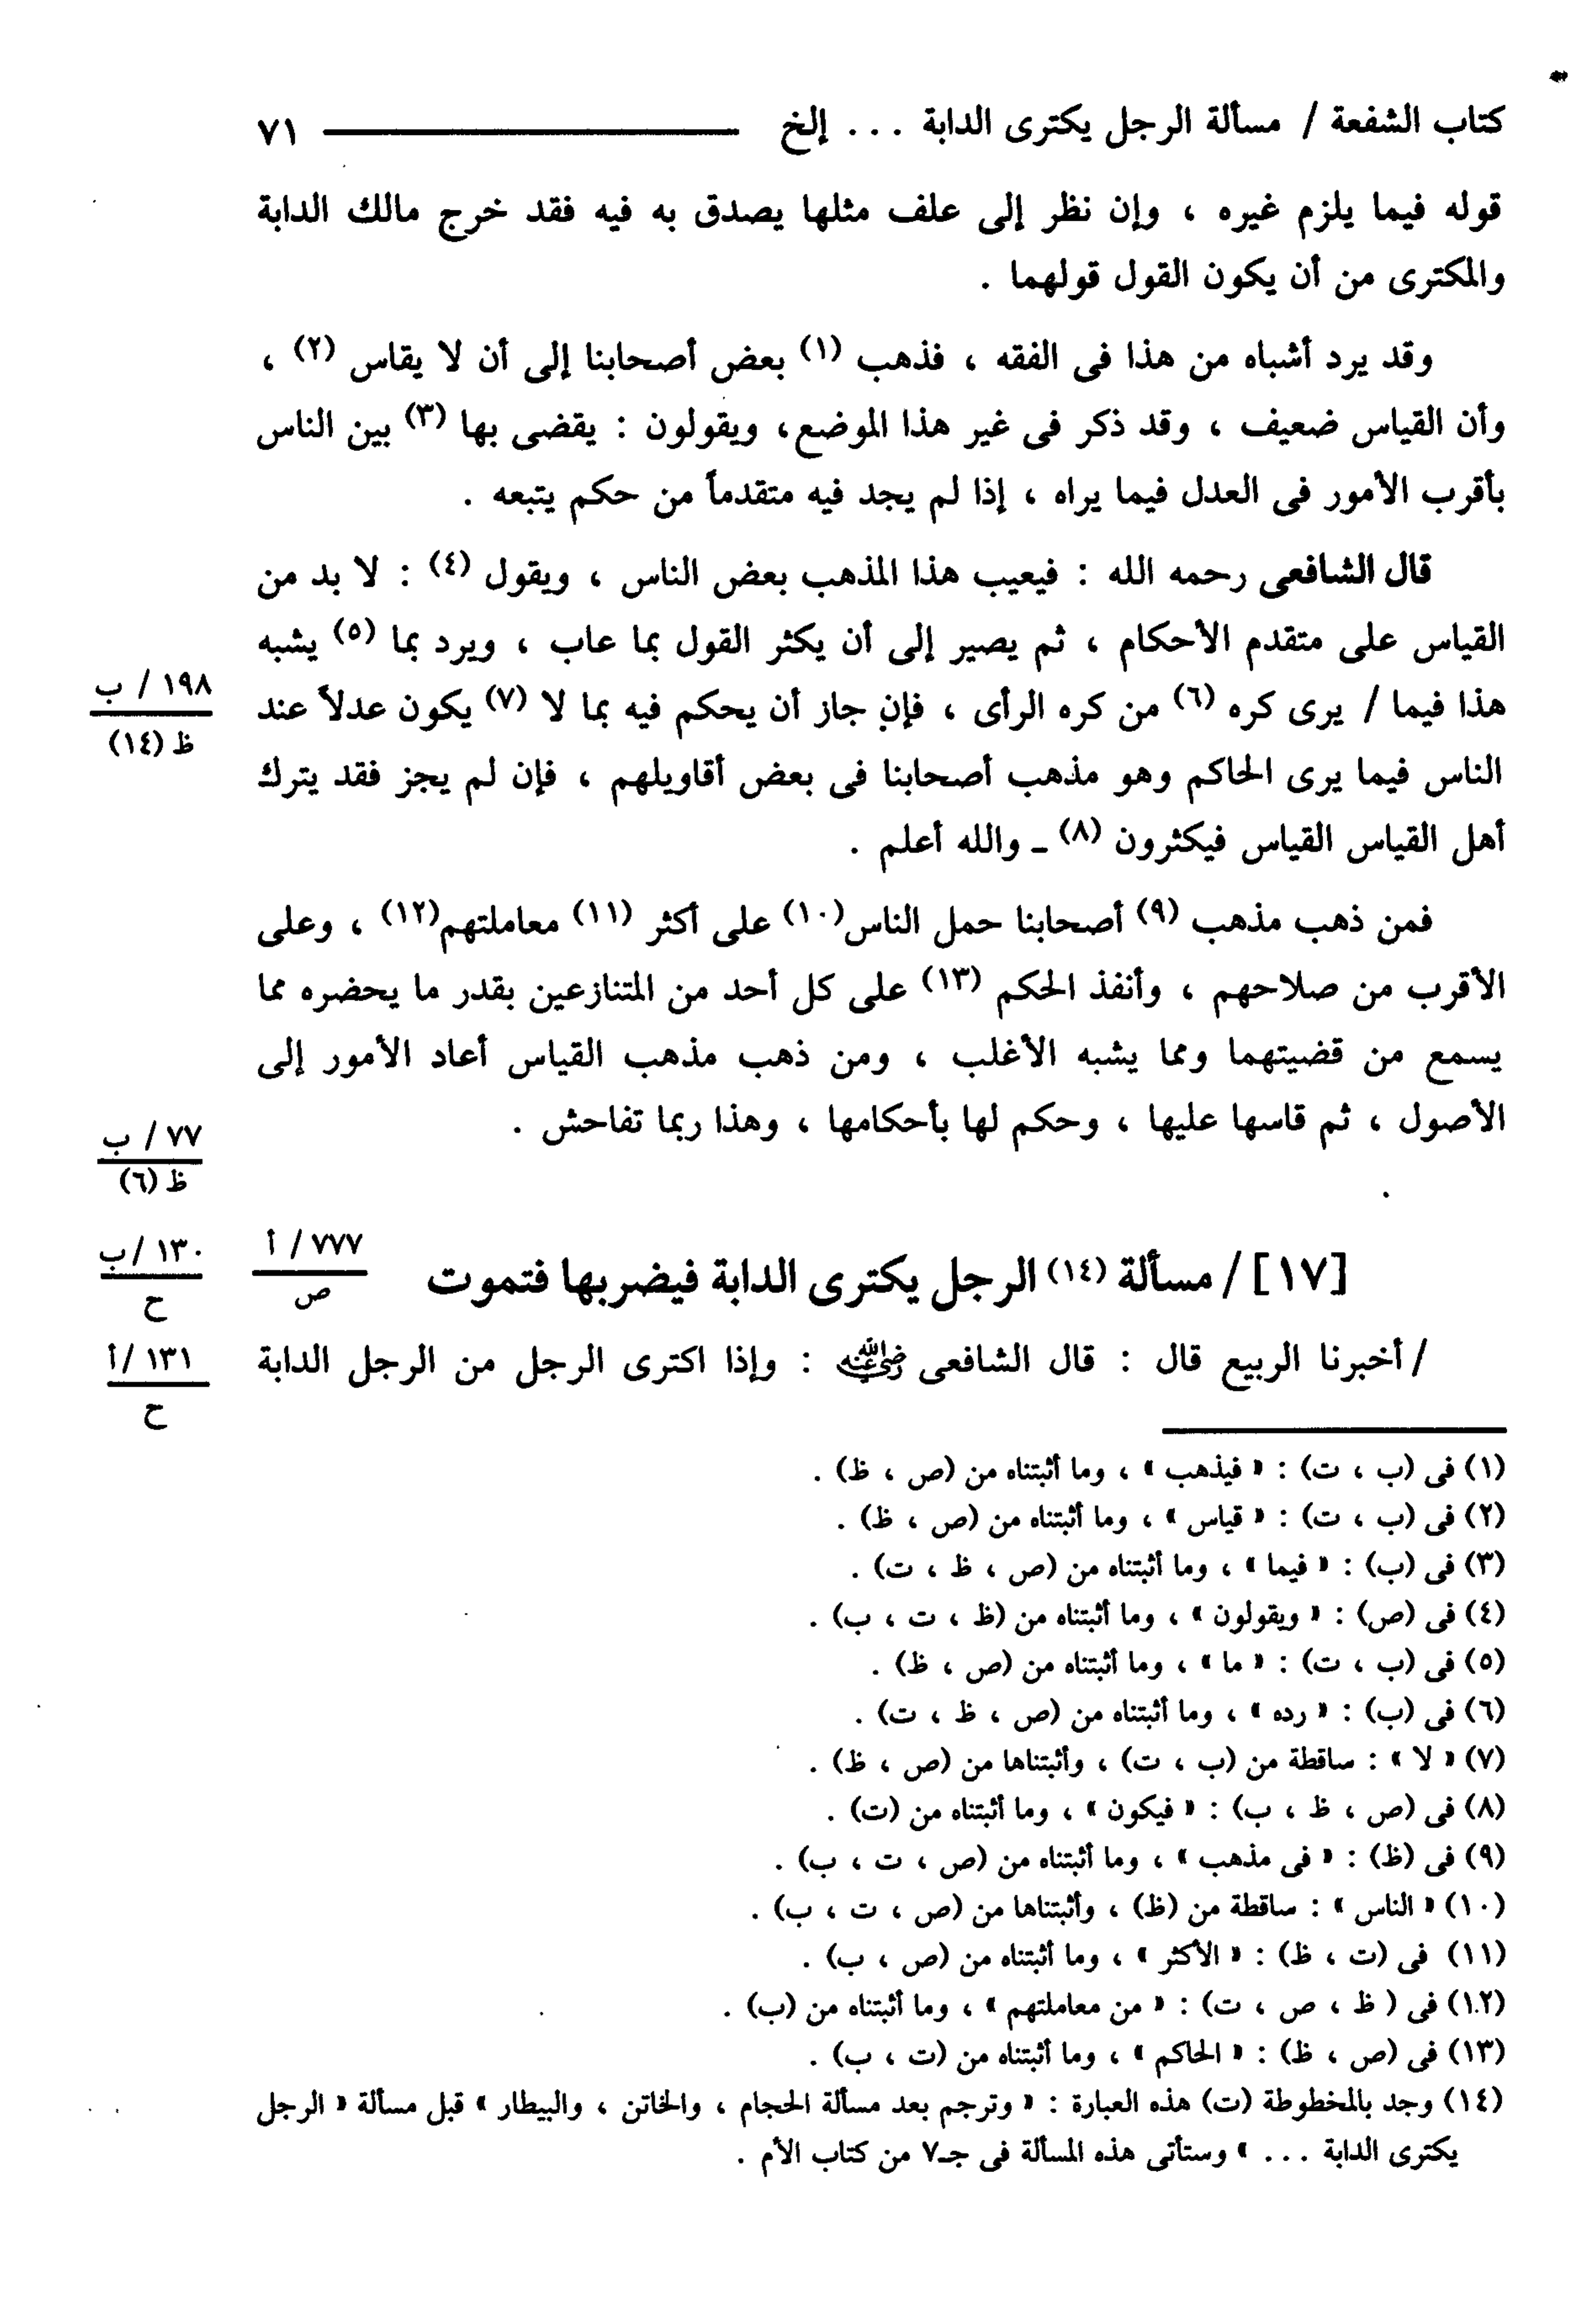 كتاب الشفعة / مسألة الرجل يكترى الدابة ... إلخ ٧١
قوله فيما يلزم غيره ، وإن نظر إلى علف مثلها يصدق به فيه فقد خرج مالك الدابة
والمكترى من أن يكون القول قولهما .
وقد يرد أشباه من هذا فى الفقه ، فذهب (١) بعض أصحابنا إلى أن لا يقاس (٢) ،
وأن القياس ضعيف ، وقد ذكر فى غير هذا الموضع، ويقولون : يقضى بها (٣) بين الناس
بأقرب الأمور فى العدل فيما يراه ، إذا لم يجد فيه متقدماً من حكم يتبعه .
قال الشافعى رحمه الله : فيعيب هذا المذهب بعض الناس ، ويقول (٤) : لا بد من
القياس على متقدم الأحكام ، ثم يصير إلى أن يكثر القول بما عاب ، ويرد بما (٥) يشبه
هذا فيما / يرى كره (٦) من كره الرأى ، فإن جاز أن يحكم فيه بما لا (٧) يكون عدلاً عند
١٩٨ / ب
ظ (١٤)
الناس فيما يرى الحاكم وهو مذهب أصحابنا فى بعض أقاويلهم ، فإن لم يجز فقد يترك
أهل القياس القياس فيكثرون (٨) ـ والله أعلم .
فمن ذهب مذهب (٩) أصحابنا حمل الناس(١٠) على أكثر (١١) معاملتهم(١٢) ، وعلى
الأقرب من صلاحهم ، وأنفذ الحكم (١٣) على كل أحد من المتنازعين بقدر ما يحضره مما
يسمع من قضيتهما ومما يشبه الأغلب ، ومن ذهب مذهب القياس أعاد الأمور إلى
الأصول ، ثم قاسها عليها ، وحكم لها بأحكامها ، وهذا ربما تفاحش .
٧٧ / ب
ظ (٦)
[١٧] / مسألة (١٤) الرجل يكترى الدابة فيضربها فتموت
٧٧٧ / أ
ص
١٣٠ / ب
ح
/ أخبرنا الربيع قال : قال الشافعى رضي الله عنه : وإذا اكترى الرجل من الرجل الدابة
١٣١ / أ
ح
(١) فى (ب ، ت) : « فيذهب » ، وما أثبتناه من (ص ، ظ) .
(٢) فى (ب ، ت) : « قياس » ، وما أثبتناه من (ص ، ظ) .
(٣) فى (ب) : « فيما » ، وما أثبتناه من (ص ، ظ ، ت) .
(٤) فى (ص) : « ويقولون » ، وما أثبتناه من (ظ ، ت ، ب) .
(٥) فى (ب ، ت) : « ما » ، وما أثبتناه من (ص ، ظ) .
(٦) فى (ب) : « رده » ، وما أثبتناه من (ص ، ظ ، ت) .
(٧) « لا » : ساقطة من (ب ، ت) ، وأثبتناها من (ص ، ظ) .
(٨) فى (ص ، ظ ، ب) : « فيكون » ، وما أثبتناه من (ت) .
(٩) فى (ظ) : « فى مذهب » ، وما أثبتناه من (ص ، ت ، ب) .
(١٠) « الناس » : ساقطة من (ظ) ، وأثبتناها من (ص ، ت ، ب) .
(١١) فى (ت ، ظ) : « الأكثر » ، وما أثبتناه من (ص ، ب) .
(١٢) فى ( ظ ، ص ، ت) : « من معاملتهم » ، وما أثبتناه من (ب) .
(١٣) فى (ص ، ظ) : « الحاكم » ، وما أثبتناه من (ت ، ب) .
(١٤) وجد بالمخطوطة (ت) هذه العبارة : « وترجم بعد مسألة الحجام ، والخاتن ، والبيطار » قبل مسألة « الرجل
يكترى الدابة ... » وستأتى هذه المسألة فى جـ٧ من كتاب الأم .